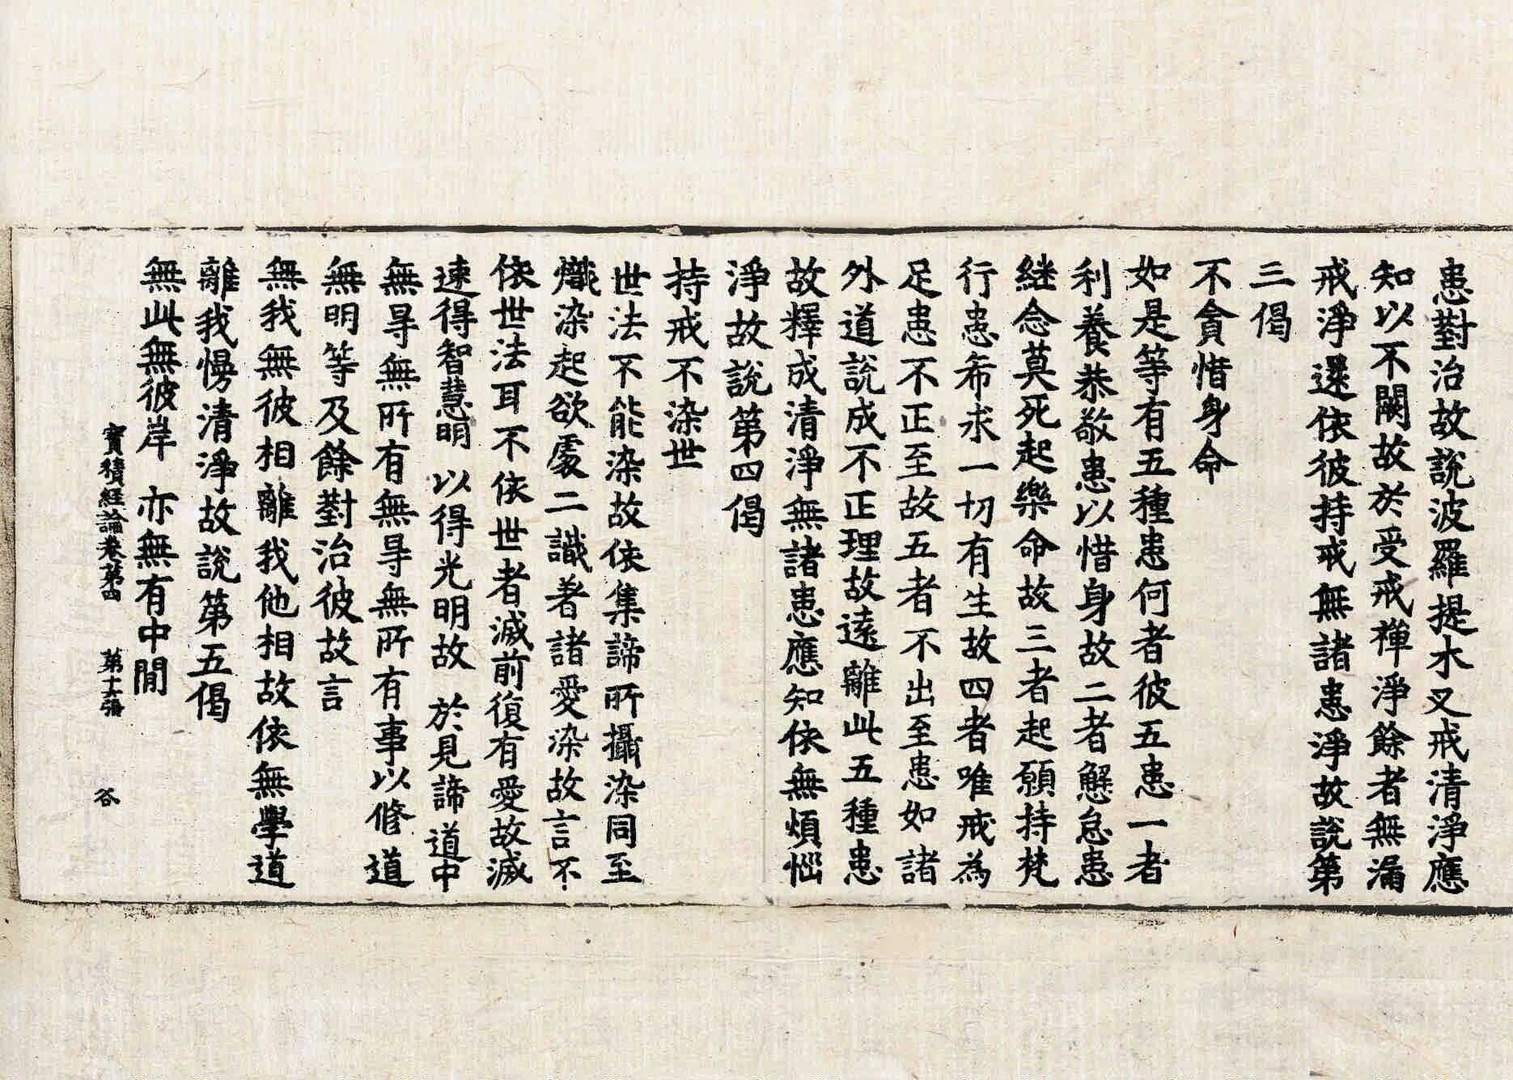 患對治故說波羅提木叉戒清淨應
知以不闕故於受戒禪淨餘者無漏
戒淨還依彼持戒無諸患淨故說第
三偈
不貪惜身命
如是等有五種患何者彼五患一者
利養恭敬患以惜身故二者懈怠患
継念莫死起樂命故三者起願持梵
行患希求一切有生故四者唯戒為
足患不正至故五者不出至患如諸
外道說成不正理故遠離此五種患
故釋成清淨無諸患應知依無煩惱
淨故說第四偈
持戒不染世
世法不能染故依集諦所攝染同至
熾染起欲處二識著諸愛染故言不
依世法耳不依世者滅前復有愛故滅
速得智慧明 以得光明故 於見諦道中
無㝵無所有無㝵無所有事以脩道
無明等及餘對治彼故言
無我無彼相離我他相故依無學道
離我慢清淨故說第五偈
無此無彼岸 亦無有中閒
寶積經論卷第四 第十張 谷